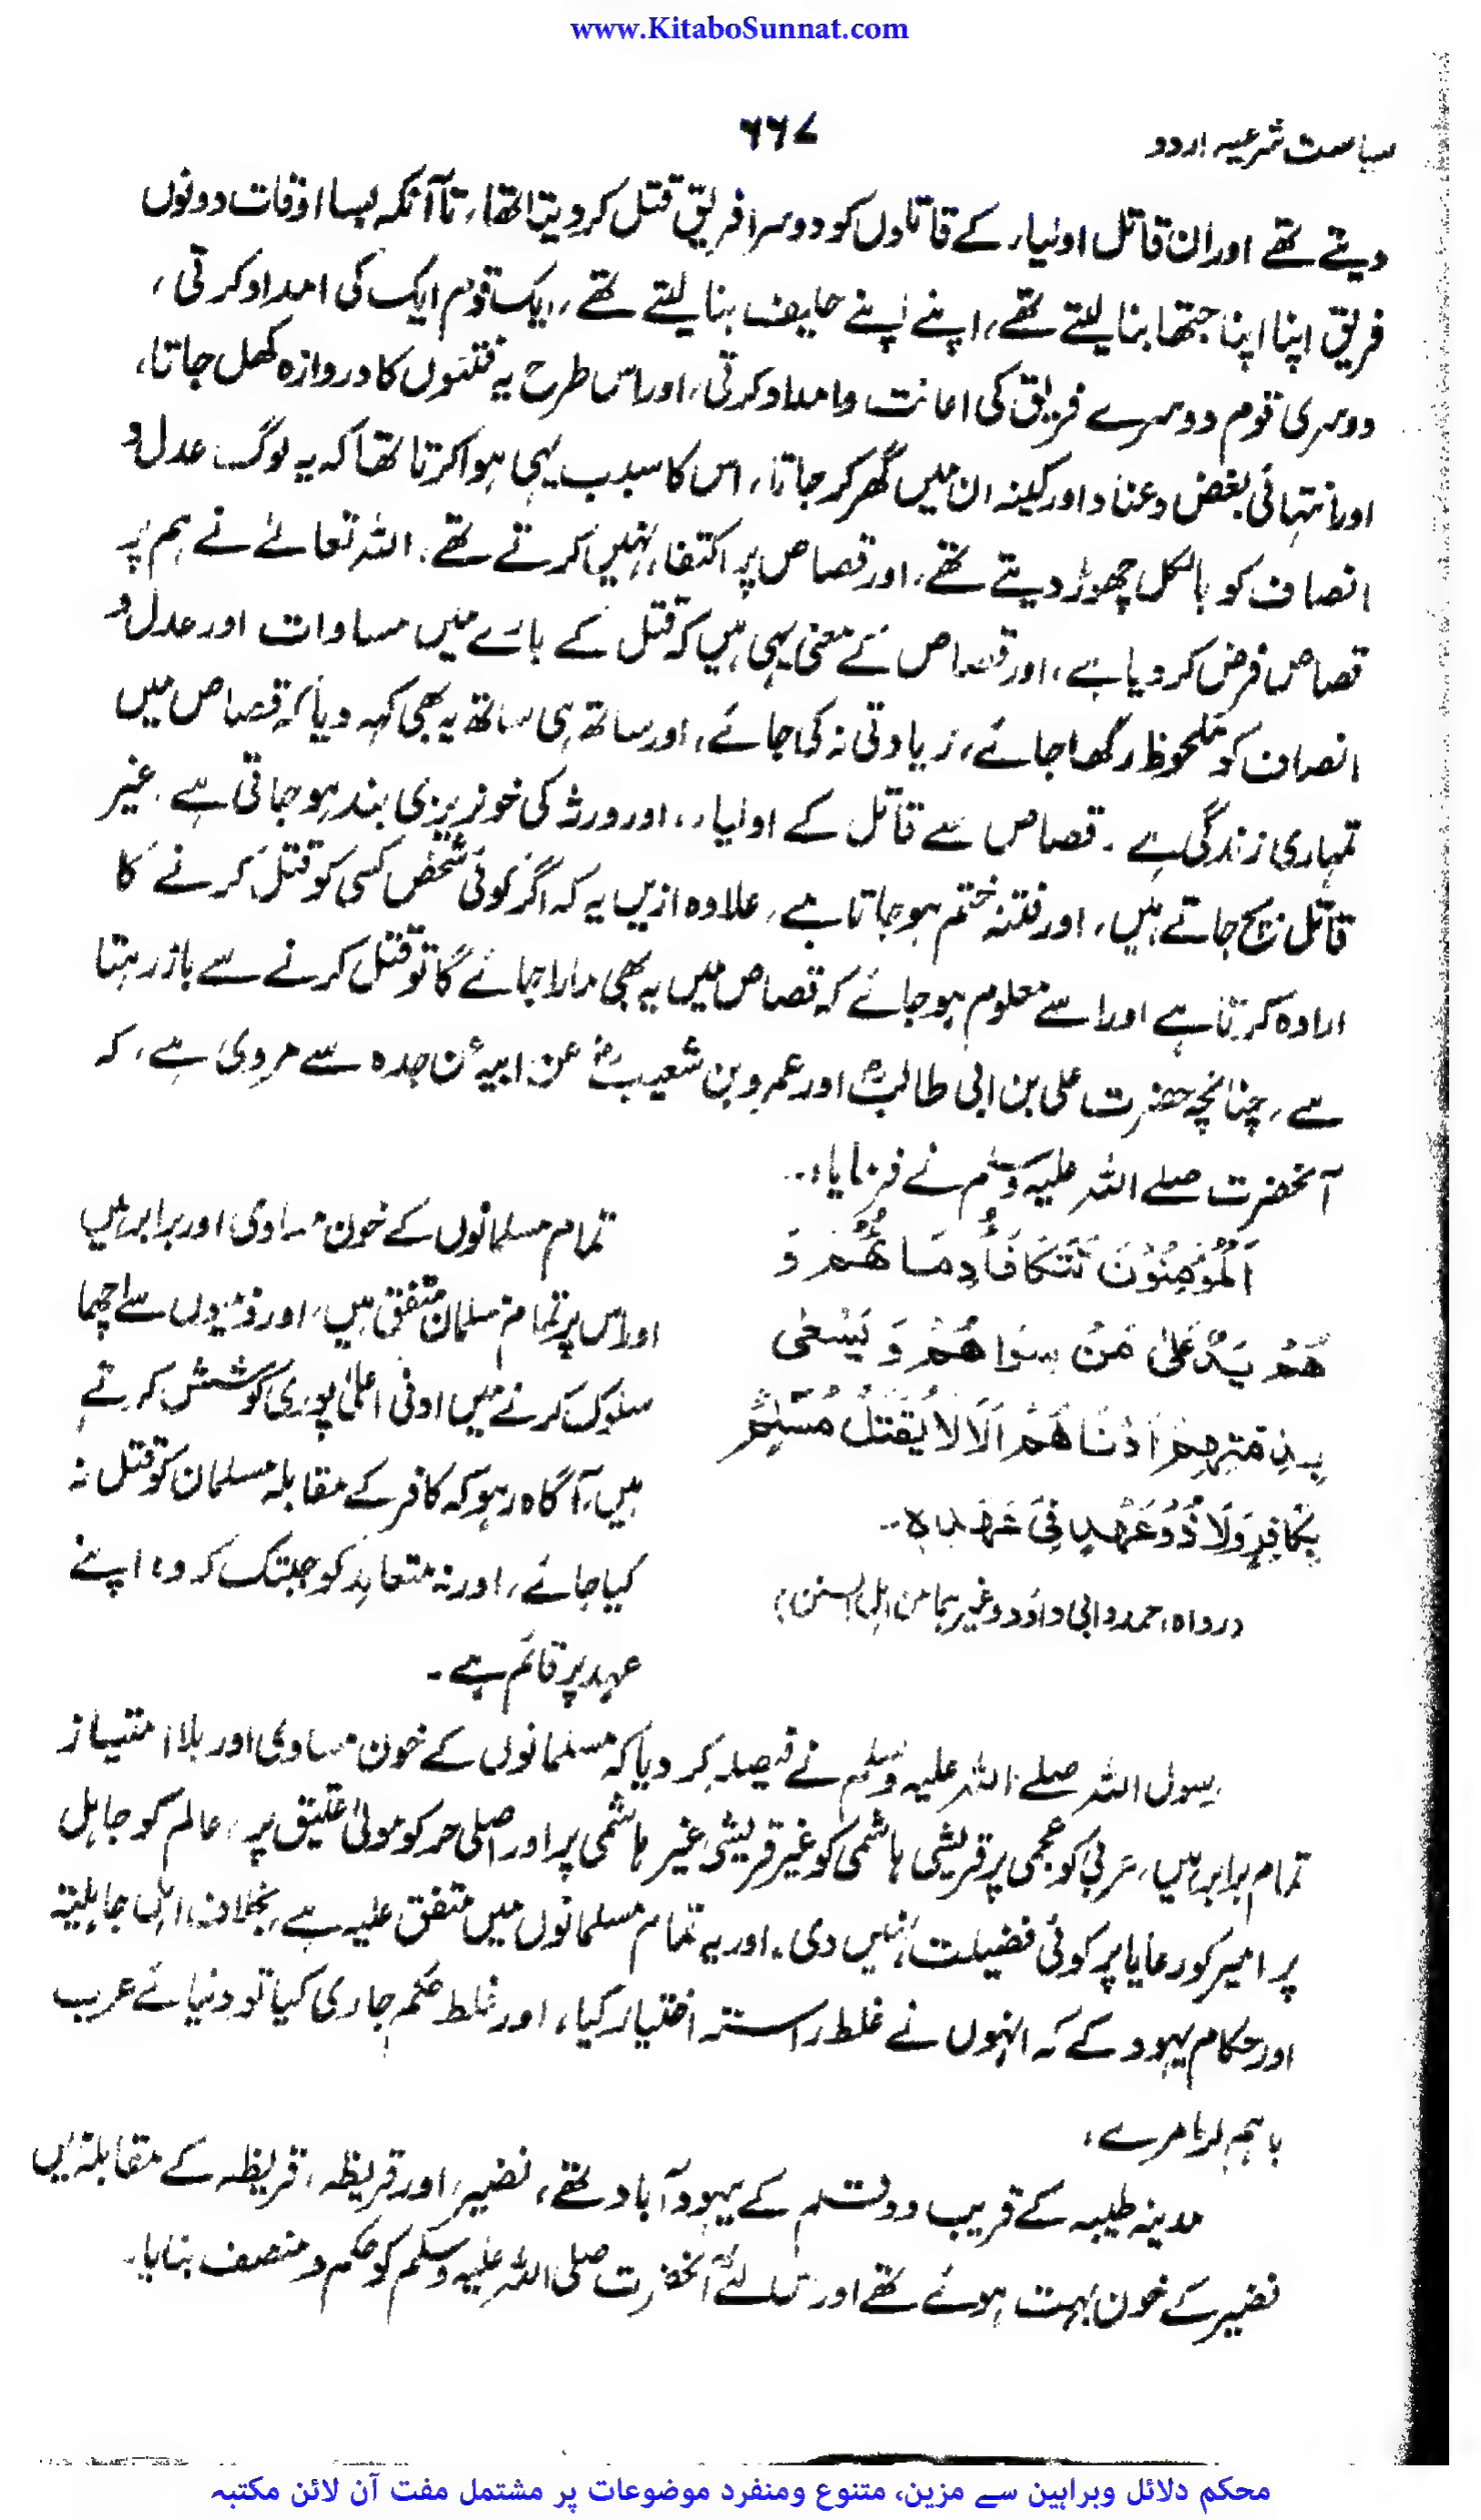 www.KitaboSunnat.com
سیاست شرعیہ اردو
۲۶۷
دیتے تھے اور ان قاتل اولیاء کے قاتلوں کو دوسرا فریق قتل کر دیتا تھا، تا آنکہ بسا اوقات دونوں
فریق اپنا اپنا جتھا بنا لیتے تھے، اپنے اپنے حلیف بنا لیتے تھے، ایک قوم ایک کی امداد کرتی،
دوسری قوم دوسرے فریق کی اعانت و امداد کرتی، اور اس طرح یہ فتنوں کا دروازہ کھل جاتا،
اور انتہائی بغض و عناد اور کینہ ان میں گھر کر جاتا، اس کا سبب یہی ہوا کرتا تھا کہ یہ لوگ عدل و
انصاف کو بالکل چھوڑ دیتے تھے، اور قصاص پر اکتفاء نہیں کرتے تھے۔ اللہ تعالےٰ نے ہم پر
قصاص فرض کر دیا ہے، اور قصاص کے معنی یہی ہیں کہ قتل کے بارے میں مساوات اور عدل و
انصاف کو ملحوظ رکھا جائے، زیادتی نہ کی جائے، اور ساتھ ہی ساتھ یہ بھی کہہ دیا کہ قصاص میں
تمہاری زندگی ہے۔ قصاص سے قاتل کے اولیاء، اور ورثہ کی خونریزی بند ہو جاتی ہے۔ غیر
قاتل بچ جاتے ہیں، اور فتنہ ختم ہو جاتا ہے، علاوہ ازیں یہ کہ اگر کوئی شخص کسی کو قتل کرنے کا
ارادہ کرتا ہے اور اسے معلوم ہو جائے کہ قصاص میں یہ بھی مارا جائے گا تو قتل کرنے سے باز رہتا
ہے، چنانچہ حضرت علی بن ابی طالبؓ اور عمرو بن شعیبؓ عن ابیہ عن جدہ سے مروی ہے، کہ
آنحضرت صلے اللہ علیہ وسلم نے فرمایا،۔
اَلْمُؤْمِنُوْنَ تَتَكَافَأُ دِمَاءُهُمْ وَ
هُمْ يَدٌ عَلىٰ مَنْ سِوَاهُمْ وَ يَسْعٰى
بِذِمَّتِهِمْ اَدْنَاهُمْ اَلَا لَا يُقْتَلُ مُسْلِمٌ
بِكَافِرٍ وَلَا ذُوْ عَهْدٍ فِيْ عَهْدِهٖ۔
(رواہ احمد و ابی داؤد و غیرہما من اہل السنن)
تمام مسلمانوں کے خون مساوی اور برابر ہیں
اور اس پر تمام مسلمان متفق ہیں، اور ذمیوں سے اچھا
سلوک کرنے میں ادنی اعلیٰ پوری کوشش کرتے
ہیں، آگاہ رہو کہ کافر کے مقابلہ مسلمان کو قتل نہ
کیا جائے، اور نہ متعاہد کو جبتک کہ وہ اپنے
عہد پر قائم ہے۔
رسول اللہ صلے اللہ علیہ وسلم نے فیصلہ کر دیا کہ مسلمانوں کے خون مساوی اور بلا امتیاز
تمام برابر ہیں، عربی کو عجمی پر قریشی ہاشمی کو غیر قریشی غیر ہاشمی پر اور اصلی حر کو مولیٰ عتیق پر، عالم کو جاہل
پر امیر کو رعایا پر کوئی فضیلت نہیں دی۔ اور یہ تمام مسلمانوں میں متفق علیہ ہے، بخلاف اہل جاہلیۃ
اور حکام یہود کے کہ انہوں نے غلط راستہ اختیار کیا، اور غلط حکم جاری کیا تو دنیائے عرب
باہم لڑا مرے،
مدینہ طیبہ کے قریب دو قسم کے یہود آباد تھے، نضیر اور قریظہ، قریظہ کے مقابلہ میں
نضیر کے خون بہت ہوئے تھے اور اس لئے آنحضرت صلی اللہ علیہ وسلم کو حکم و منصف بنایا۔
محکم دلائل وبراہین سے مزین، متنوع ومنفرد موضوعات پر مشتمل مفت آن لائن مکتبہ